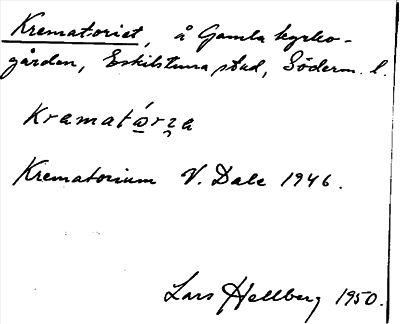 Krematoriet, å Gamla kyrko-
gården, Eskilstuna stad, Söderm. l.
Kramató̱rı̯a
Krematorium V. Dale 1946.
Lars Hellberg 1950.